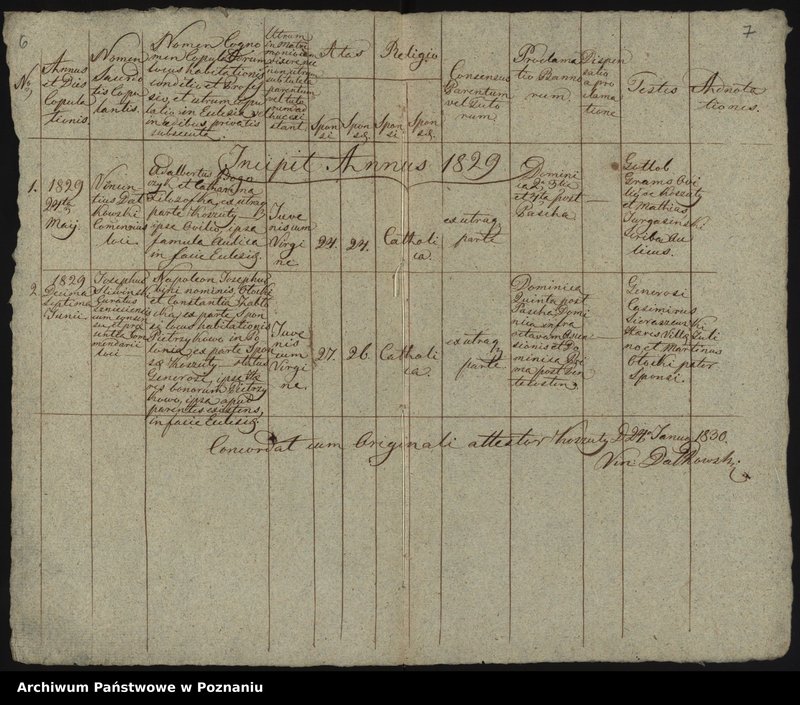 6
7
No
Annus
et Dies
Copula
tionis.
Nomen
Sacerdo
tis Copu
lantis.
Nomen Cogno
men Copulatorum
locus habitationis
conditio et Profes
sio, et utrum copu
latio in Ecclesia vel
in ædibus privatis
subsecuta.
Utrum
in Matri
monio jam
vixere nec
non utrum
sub tutela
parentum
vel tuto
rum ad
huc exi
stant.
Ætas
Spon
si
Spon
sæ.
Religio
Spon
si
Spon
sæ.
Consensus
Parentum
vel Tuto
rum.
Proclama
tio Banno
rum.
Dispen
satio
a pro
clama
tione.
Testis
Adnota
tiones.
Incipit Annus 1829
1.
1829
24ta
Maij.
Vincen
tius Dal
kowski
Comendarius
loci
Adalbertus
et Catharina
Filozofka, ex utraq
parte Koszuty
ipse Ovilio, ipsa
famula Aulica
in facie Ecclesiæ
Juve
nis cum
Virgi
ne
24.
24.
Catholi
ca.
ex utraq
parte
Domini
ca 2, 3tia
et 4ta post
Pascha
Gotlob
Grams Ovi
lio se Koszuty
et Mathias
Jurgasinski
scriba Au
licus.
2
1829
Decima
septima
Junii.
Josephus
Sliwinski
Curatus
cum consen
su et præ
sentia Com
mendarii
loci
Napoleon Josephus
bini nominis, Otocki
et Constantia
cka, ex parte Spon
si locus habitationis
Pietrzykowo in Po
lonia, ex parte Spon
sæ Koszuty status
Generosi, ipse Hæ
res bonorum Pietrzy
kowo, ipsa apud
parentes existens,
in facie Ecclesiæ
Juve
nis cum
Virgi
ne.
27.
26.
Catholi
ca.
ex utraq
parte
Dominica
Quinta post
Pascha Domi
nica infra
octavam Ascen
sionis et Do
minica Pri
ma post Pen
tecosten.
Generosi
Casimirus
Sieraszewski
Hæres Villæ Luli
no et Martinus
Otocki pater
Sponsi.
Concordat cum Originali attestor Koszuty D. 24 Janua 1830.
Vin: Dalkowski
Archiwum Państwowe w Poznaniu